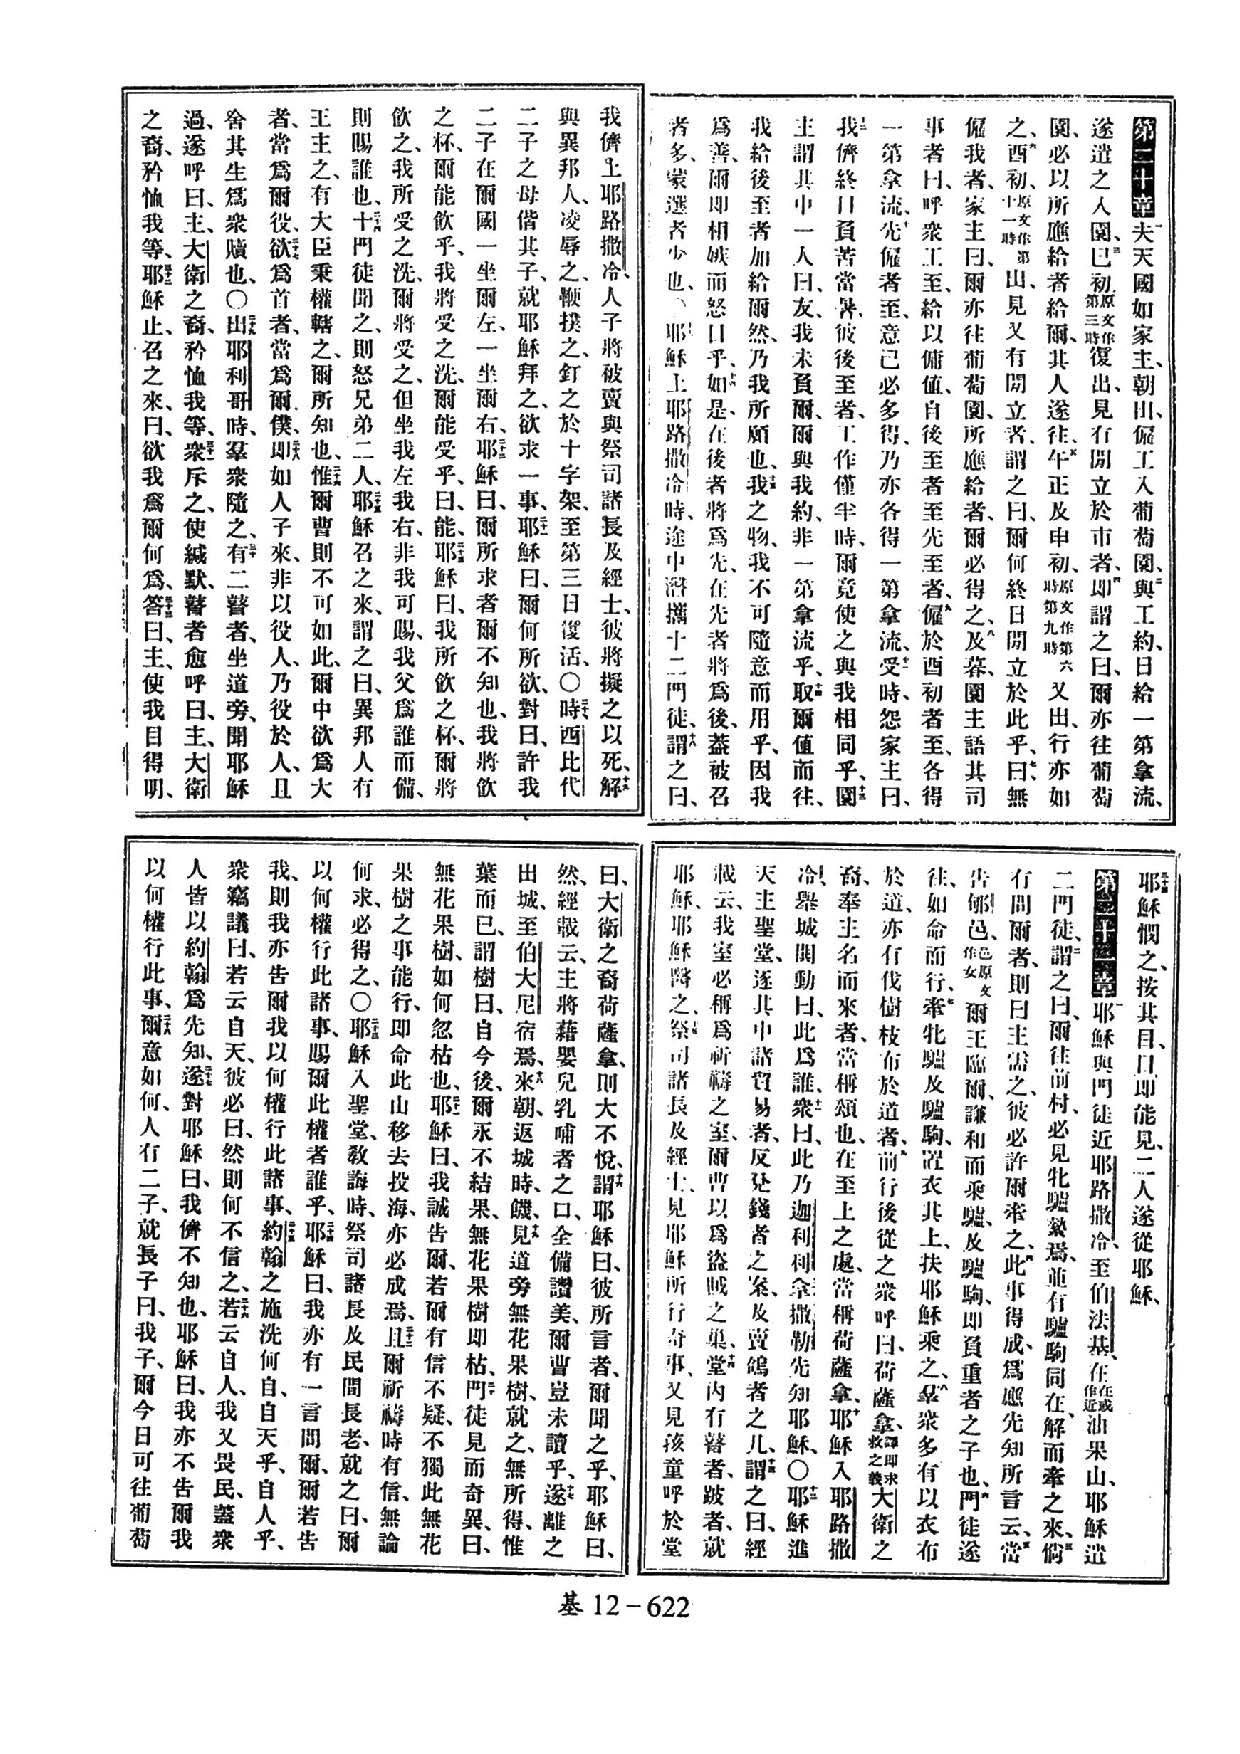 第二十章夫天國如家主、朝出、僱工入葡萄園、與工約、日給一第拿流、
遂遣之入園、巳初、原文作第三時復出、見有閒立於市者、卽謂之曰、爾亦往葡萄
園、必以所應給者給爾、其人遂往、午正及申初、原文作第六時第九時又出、行亦如
之、酉初、原文作第十一時出、見又有閒立者、謂之曰、爾何終日閒立於此乎、曰、無
僱我者、家主曰、爾亦往葡萄園、所應給者、爾必得之、及暮、園主語其司
事者曰、呼衆工至、給以傭値、自後至者至先至者、僱於酉初者至、各得
一第拿流、先僱者至、意己必多得、乃亦各得一第拿流、受時、怨家主曰、
我儕終日負苦當暑、彼後至者、工作僅半時、爾竟使之與我相同乎、園
主謂其中一人曰、友、我未負爾、爾與我約、非一第拿流乎、取爾值而往、
我給後至者如給爾然、乃我所願也、我之物、我不可隨意而用乎、因我
爲善、爾卽相嫉而怒目乎、如是、在後者將爲先、在先者將爲後、蓋被召
者多、蒙選者少也、耶穌上耶路撒冷時、途中潛攜十二門徒、謂之曰、
我儕上耶路撒冷、人子將被賣與祭司諸長及經士、彼將擬之以死、解
與異邦人、凌辱之、鞭撲之、釘之於十字架、至第三日復活、〇時西比代
二子之母偕其子、就耶穌拜之、欲求一事、耶穌曰、爾何所欲、對曰、許我
二子在爾國一坐爾左、一坐爾右、耶穌曰、爾所求者爾不知也、我將飲
之杯、爾能飲乎、我將受之洗、爾能受乎、曰、能、耶穌曰、我所飲之杯、爾將
飲之、我所受之洗、爾將受之、但坐我左我右、非我可賜、我父爲誰而備、
則賜誰也、十門徒聞之、則怒兄弟二人、耶穌召之來、謂之曰、異邦人有
王主之、有大臣秉權轄之、爾所知也、惟爾曹則不可如此、爾中欲爲大
者、當爲爾役、欲爲首者、當爲爾僕、卽如人子來、非以役人、乃役於人、且
舍其生爲衆贖也、〇出耶利哥時、羣衆隨之、有二瞽者、坐道旁、聞耶穌
過、遂呼曰、主、大衛之裔、矜恤我等、衆斥之、使緘默、瞽者愈呼曰、主、大衛
之裔、矜恤我等、耶穌止、召之來、曰、欲我爲爾何爲、答曰、主、使我目得明、
耶穌憫之、按其目、目卽能見、二人遂從耶穌、
第二十一章耶穌與門徒近耶路撒冷、至伯法基、在在或作近油果山、耶穌遣
二門徒、謂之曰、爾往前村、必見牝驢縶焉、並有驢駒同在、解而牽之來、倘
有問爾者、則曰主需之、彼必許爾牽之、此事得成、爲應先知所言云、當
告郇邑、邑原文作女爾王臨爾、謙和而乘驢、及驢駒、卽負重者之子也、門徒遂
往、如命而行、牽牝驢及驢駒、置衣其上、扶耶穌乘之、羣衆多有以衣布
於道、亦有伐樹枝布於道者、前行後從之衆呼曰、荷薩拿、譯卽求救之義大衛之
裔、奉主名而來者、當稱頌也、在至上之處、當稱荷薩拿、耶穌入耶路撒
冷、舉城閧動曰、此爲誰、衆曰、此乃迦利利拿撒勒先知耶穌、〇耶穌進
天主聖堂、逐其中諸貿易者、反兌錢者之案、及賣鴿者之几、謂之曰、經
載云、我室必稱爲祈禱之室、爾曹以爲盜賊之巢、堂內有瞽者、跛者、就
耶穌、耶穌醫之、祭司諸長及經士、見耶穌所行奇事、又見孩童呼於堂
曰、大衛之裔荷薩拿、則大不悅、謂耶穌曰、彼所言者、爾聞之乎、耶穌曰、
然、經載云、主將藉嬰兒乳哺者之口、全備讚美、爾曹豈未讀乎、遂離之
出城、至伯大尼宿焉、來朝、返城時、饑、見道旁無花果樹、就之、無所得、惟
葉而已、謂樹曰、自今後、爾永不結果、無花果樹卽枯、門徒見而奇異、曰、
無花果樹、如何忽枯也、耶穌曰、我誠告爾、若爾有信不疑、不獨此無花
果樹之事能行、卽命此山移去投海、亦必成焉、且爾祈禱時有信、無論
何求、必得之、〇耶穌入聖堂、敎誨時、祭司諸長及民間長老、就之曰、爾
以何權行此諸事、賜爾此權者誰乎、耶穌曰、我亦有一言問爾、爾若告
我、則我亦告爾我以何權行此諸事、約翰之施洗何自、自天乎、自人乎、
衆竊議曰、若云自天、彼必曰、然則何不信之、若云自人、我又畏民、蓋衆
人皆以約翰爲先知、遂對耶穌曰、我儕不知也、耶穌曰、我亦不告爾我
以何權行此事、爾意如何、人有二子、就長子曰、我子、爾今日可往葡萄
基 12－622